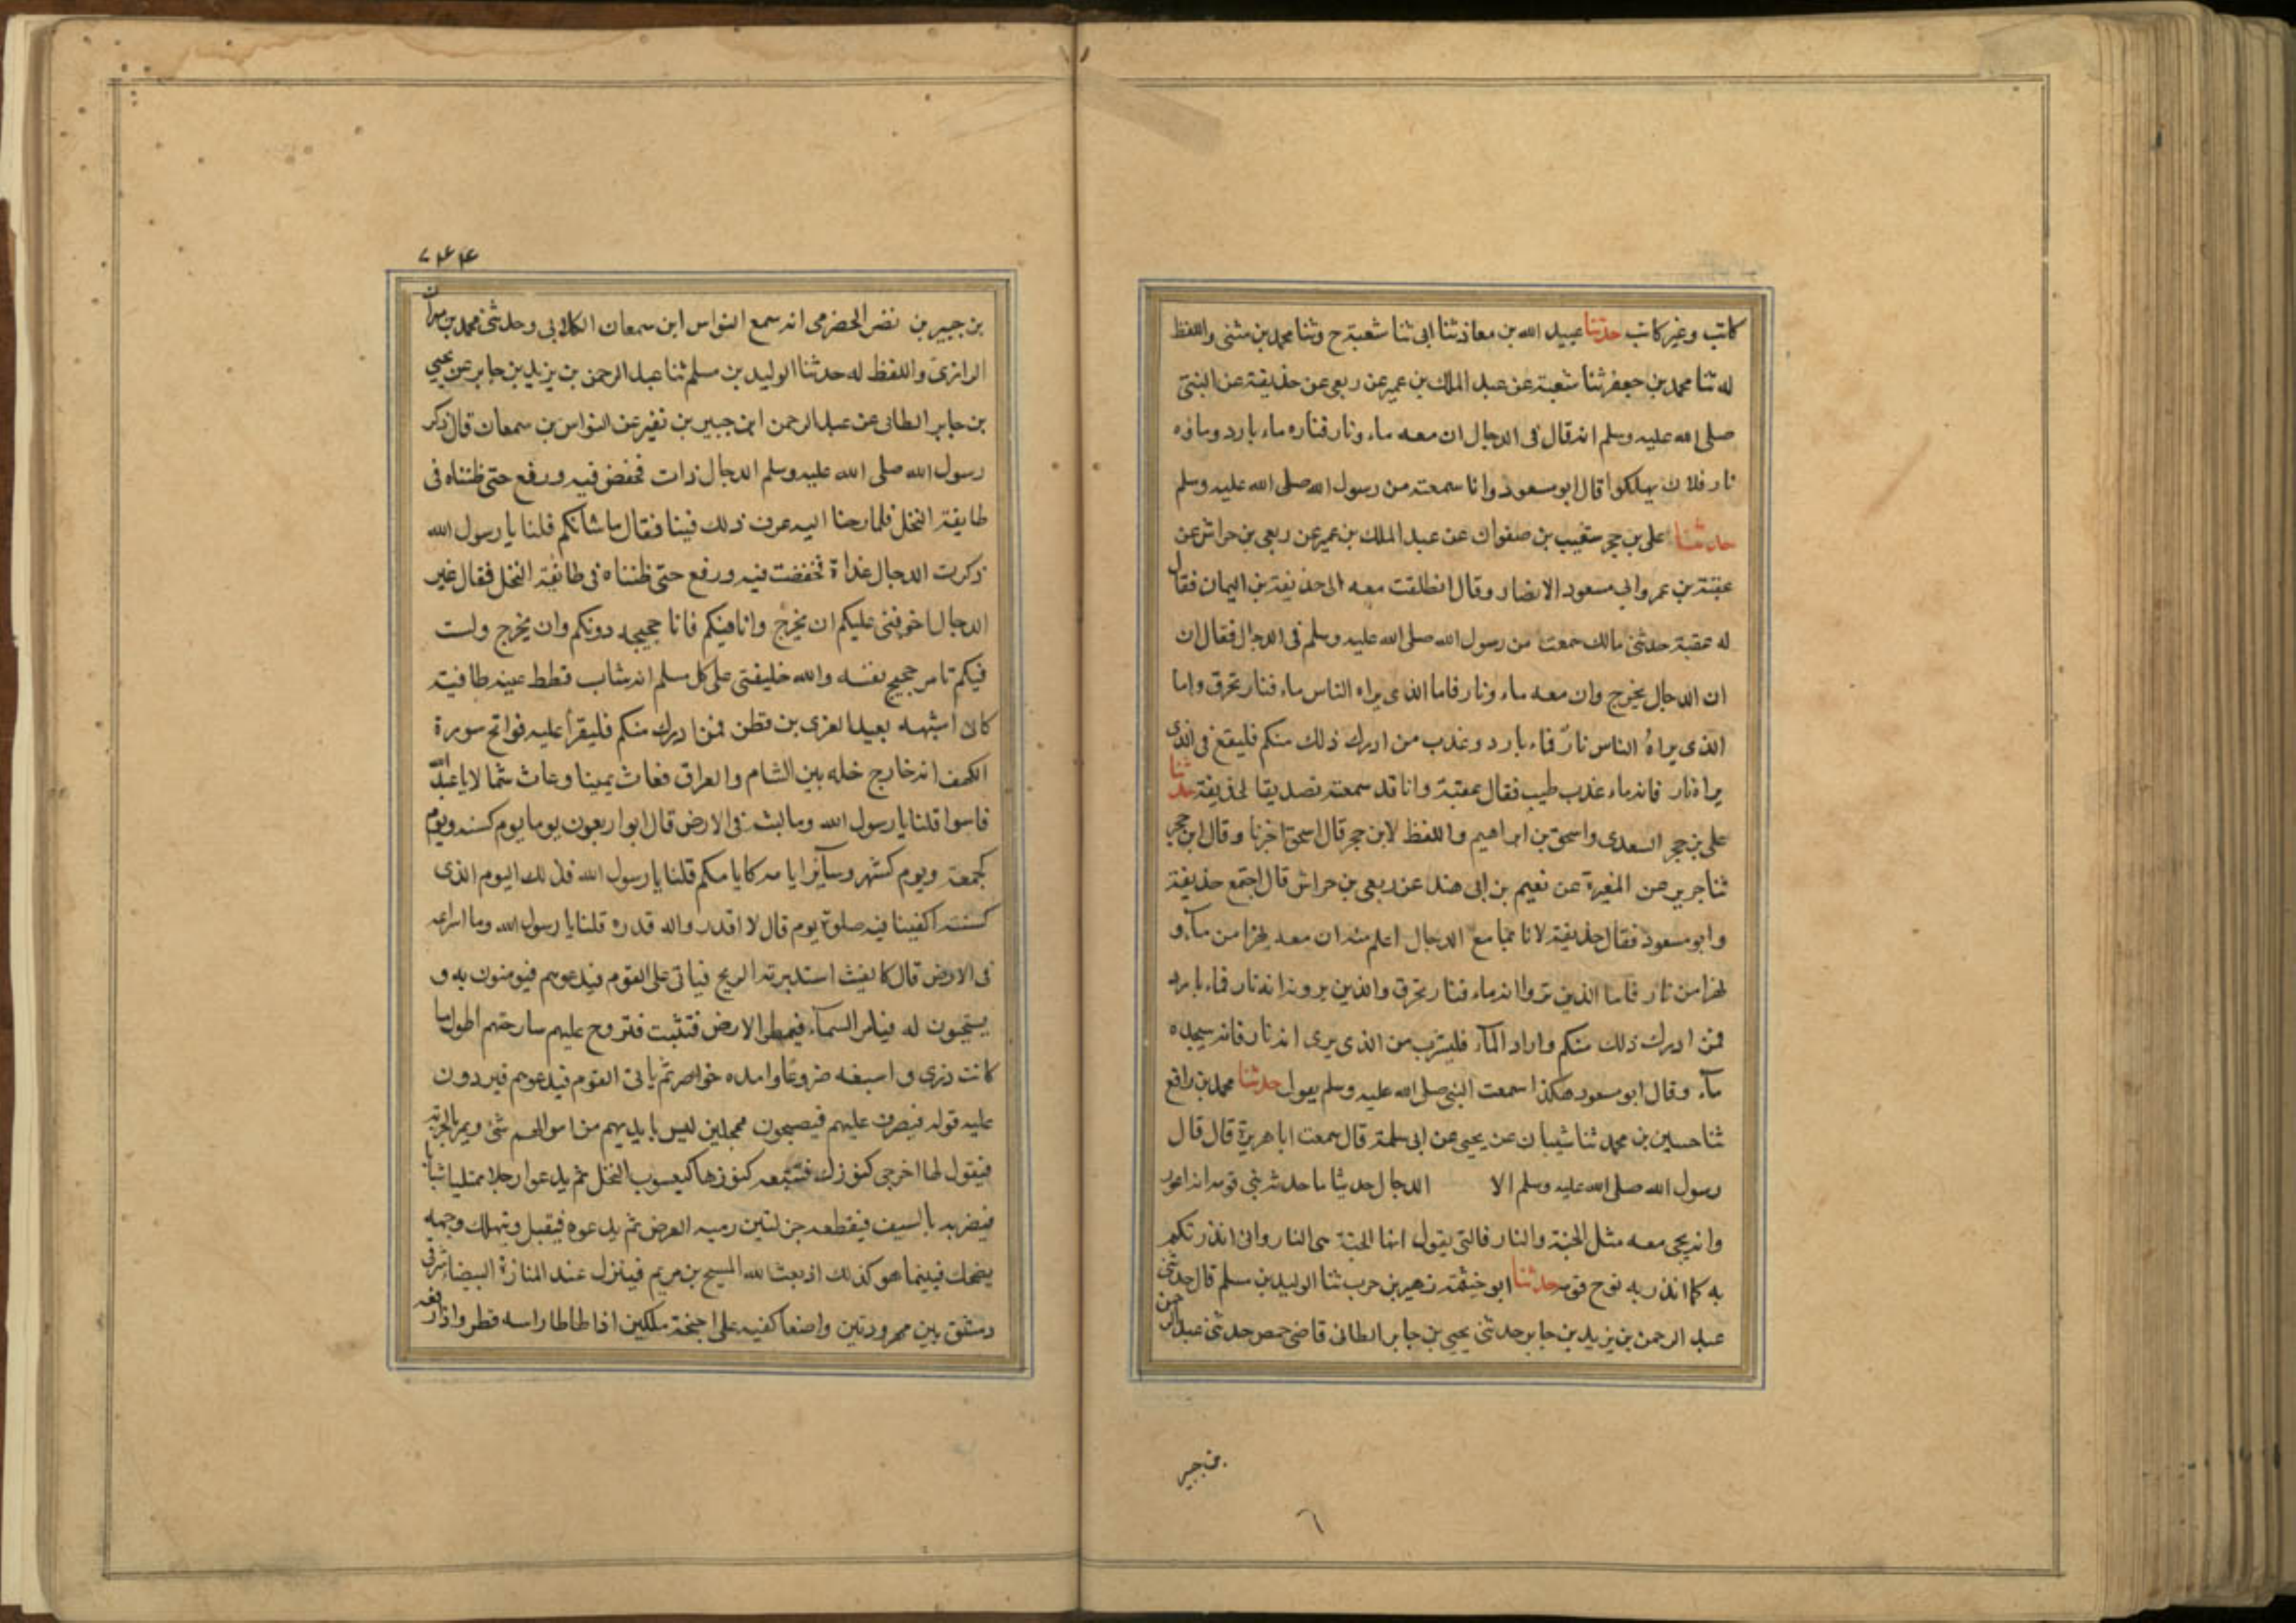 كاتب وغير كاتب حدثنا عبيد الله بن معاذ ثنا ابى ثنا شعبة ح وثنا محمد بن مثنى واللفظ
له ثنا محمد بن جعفر ثنا شعبة عن عبد الملك بن عمير عن ربعى عن حذيفة عن النبى
صلى الله عليه وسلم انه قال فى الدجال ان معه ماء ونار فناره ماء بارد وماؤه
نار فلا تهلكوا قال ابو مسعود وانا سمعته من رسول الله صلى الله عليه وسلم
حدثنا على بن حجر شعيب بن صفوان عن عبد الملك بن عمير عن ربعى بن حراش عن
عقبة بن عمرو ابى مسعود الانصار وقال انطلقت معه الى حذيفة بن اليمان فقال
له عقبة حدثنى مالك سمعت من رسول الله صلى الله عليه وسلم فى الدجال فقال ان
ان الدجال يخرج وان معه ماء ونار فاما الذى يراه الناس ماء فنار تحرق واما
الذى يراه الناس نار فماء بارد وعذب من ادرك ذلك منكم فليقع فى الذى
يراه نار فانه ماء عذب طيب فقال عقبة وانا قد سمعته تصديقا لحذيفة حدثنا
على بن حجر السعدى واسحق بن ابراهيم واللفظ لابن حجر قال اسحق اخرنا وقال ابن حجر
ثنا جرير عن المغيرة عن نعيم بن ابى هند عن ربعى بن حراش قال اجتمع حذيفة
وابو مسعود فقال حذيفة لانا بما مع الدجال اعلم منه ان معه نهرا من مآء و
نهرا من نار فاما الذين تروا انه ماء فنار تحرق والذين يرونه انه نار فماء بارد
فمن ادرك ذلك منكم واراد المآء فليشرب من الذى يرى انه نار فانه سيجده
مآء وقال ابو مسعود هكذا سمعت النبى صلى الله عليه وسلم يقول حدثنا محمد بن رافع
ثنا حسين بن محمد ثنا شيبان عن يحيى عن ابى سلمة قال سمعت ابا هريرة قال قال
رسول الله صلى الله عليه وسلم الا الدجال حديثا ما حدثه نبى قومه انه اعور
وانه يجى معه مثل الجنة والنار فالتى يقول انها الجنة هى النار وانى انذرتكم
به كما انذر به نوح قومه حدثنا ابو خيثمة زهير بن حرب ثنا الوليد بن مسلم قال حدثنى
عبد الرحمن بن يزيد بن جابر حدثنى يحيى بن جابر الطائى قاضى حمص حدثنى عبد الرحمن
بن جبير
٦
٧٤٤
بن جبير بن نضر الحضرمى انه سمع النواس ابن سمعان الكلابى وحدثنى محمد بن مهران
الرازى واللفظ له حدثنا الوليد بن مسلم ثنا عبد الرحمن بن يزيد بن جابر عن يحيى
بن جابر الطائى عن عبد الرحمن ابن جبير بن نفير عن النواس بن سمعان قال ذكر
رسول الله صلى الله عليه وسلم الدجال ذات فخفض فيه ورفع حتى ظنناه فى
طايفة النخل فلما رحنا اليه عرف ذلك فينا فقال ما شانكم قلنا يا رسول الله
ذكرت الدجال غداة فخفضت فيه ورفع حتى ظنناه فى طائفة النخل فقال غير
الدجال اخوفنى عليكم ان يخرج وانا فيكم فانا حجيجه دونكم وان يخرج ولست
فيكم فامر حجيج نفسه والله خليفتى على كل مسلم انه شاب قطط عينه طافية
كانى اشبهه بعبد العزى بن قطن فمن ادرك منكم فليقرأ عليه فواتح سورة
الكهف انه خارج خله بين الشام والعراق فعاث يمينا وعاث شمالا يا عبد الله
فاسوا قلنا يا رسول الله وما لبثه فى الارض قال ابو اربعون يوما يوم كسنه ويوم
كجمعة ويوم كشهر وسآئر ايامه كايامكم قلنا يا رسول الله فذلك اليوم الذى
كسنته اكفينا فيه صلوة يوم قال لا اقدر واله قدره قلنا يا رسول الله وما اسراعه
فى الارض قال كالغيث استدبرته الريح فياتى على القوم فيدعوهم فيومنون به و
يستجيبون له فيامر السمآء فيمطر الارض فتنبت فتروح عليهم سارحتهم اطول ما
كانت ذرى واسبغه ضروعًا وامده خواصر ثم ياتى القوم فيدعوهم فيردون
عليه قوله فينصرف عليهم فيصبحون ممحلين ليس بايديهم من اموالهم شئ ويمر بالخربة
فيقول لها اخرجى كنوزك فتتبعه كنوزها كيعسوب النخل ثم يدعوا رجلا ممتليا شبابا
فيضربه بالسيف فيقطعه جزلتين رمية الغرض ثم يدعوه فيقبل ويتهلك وجهه
يضحك فبينما هو كذلك اذ بعث الله المسيح بن مريم فينزل عند المنارة البيضاء شرقى
دمشق بين مهرودتين واضعا كفيه على اجنحة ملكين اذا طاطا راسه قطر واذا رفعه